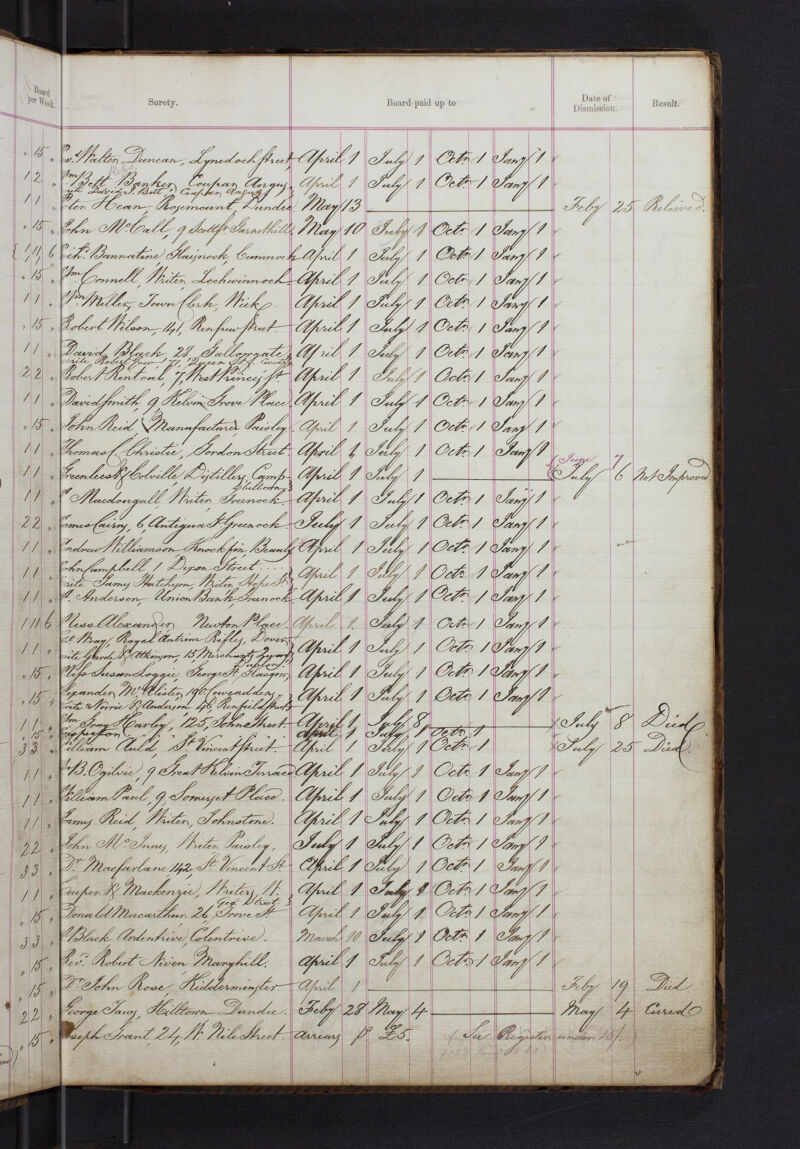 Board per Week. Surety. Board paid up to Date of Dismission. Result.
" 15 " Walter Duncan, Lynedoch Street, April 1 July 1 Octr 1 Jany 1
1 2 " Bett Banker, Coupar Angus April 1 July 1 Octr 1 Jany 1
Coupar Angus
1 1 " Peter Hean, Rosemount, Dundee May 13 Feby 25 Relieved.
" 15 " John McCall, 9 Scott St Garnethill May 10 July 1 Octr 1 Jany 1
1 11 6 Bannatine Cumnock April 1 July 1 Octr 1 Jany 1
" 15 " Wm Connell, Writer, Lochwinnoch April 1 July 1 Octr 1 Jany 1
1 1 " Wm Miller, Town Clerk, Wick. April 1 July 1 Octr 1 Jany 1
" 15 " Robert Wilson, 141, Renfrew Street. April 1 July 1 Octr 1 Jany 1
1 1 " David Black, 28, Gallowgate April 1 July 1 Octr 1 Jany 1
write Robert Gow 71, Queen St
2 2 " Robert Rintoul, 7, West Princes St. April 1 July 1 Octr 1 Jany 1
1 1 " David Smith, 9 Kelvin Grove Place April 1 July 1 Octr 1 Jany 1
" 15 " John Reid Manufacturer Paisley April 1 July 1 Octr 1 Jany 1
1 1 " Thomas C. Christie, Gordon Street April 6 July 1 Octr 1 Jany 1
June 7
1 1 " Greenlees & Colville, Distillers, Camp- April 1 July 1 July 6 Not Improved
beltown
1 1 " Macdougall Writer Greenock April 1 July 1 Octr 1 Jany 1
2 2 " James Cairns, 6, Antigua St. Greenock July 1 July 1 Octr 1 Jany 1
1 1 " Andrew Williamson Knockfin, Beauly April 1 July 1 Octr 1 Jany 1
1 1 " John Campbell 1 Dixon Street April 1 July 1 Octr 1 Jany 1
write James Hutcheson, Writer, Hope St
1 1 " Anderson, Union Bank, Greenock April 1 July 1 Octr 1 Jany 1
1 11 6 Miss Alexander Newton Place. April 1. July 1 Octr 1 Jany 1
1 1 " May, Royal Antrim Rifles, Dover April 1 July 1 Octr 1 Jany 1
write & Atkinson, 15, Merchants Quay
Dublin
" 15 " Miss Susan Loggie, George St, Glasgow April 1 July 1 Octr 1 Jany 1
" 15 " Alexander McAlister, 190 Cowcaddens April 1 July 1 Octr 1 Jany 1
write Norrie & Anderson 46, Renfield Street
1 1 " Harby, 125, John Street April 1 July 8 July 8 Died
" 15 " April 1 July 1 Octr 1
3 3 " William Auld, St Vincent Street. April 1 July 1 Octr 1 July 25 Died.
1 1 " B. Ogilvie, 9 Great Kelvin Terrace April 1 July 1 Octr 1 Jany 1
1 1 " William Paul, 9 Somerset Place. April 1 July 1 Octr 1 Jany 1
1 1 " James Reid, Writer, Johnstone. April 1 July 1 Octr 1 Jany 1
2 2 " John McInnes, Writer, Paisley. July 1 July 1 Octr 1 Jany 1
3 3 " Dr. Macfarlane, 142, St. Vincent St April 1 July 1 Octr 1 Jany 1
1 1 " Couper & Mackenzie, Writers, W. April 1 July 1 Octr 1 Jany 1
Geo. Street
" 15 " Donald Macarthur 26, Grove St April 1 July 1 Octr 1 Jany 1
3 3 " Black Ardentrive, Colentrive. March 10 July 1 Octr 1 Jany 1
" 15 " Revd. Robert Niven Maryhill. April 1 July 1 Octr 1 Jany 1
" 15 " Dr. John Rose, Kidderminster April 1 Feby 19 Died
2 2 " George Taws, Hilltown Dundee. Feby 28 May 4 May 4 Cured
" 15 " Joseph Grant, 24, N. Nile Street. arrears p £5. See Register under 15/.